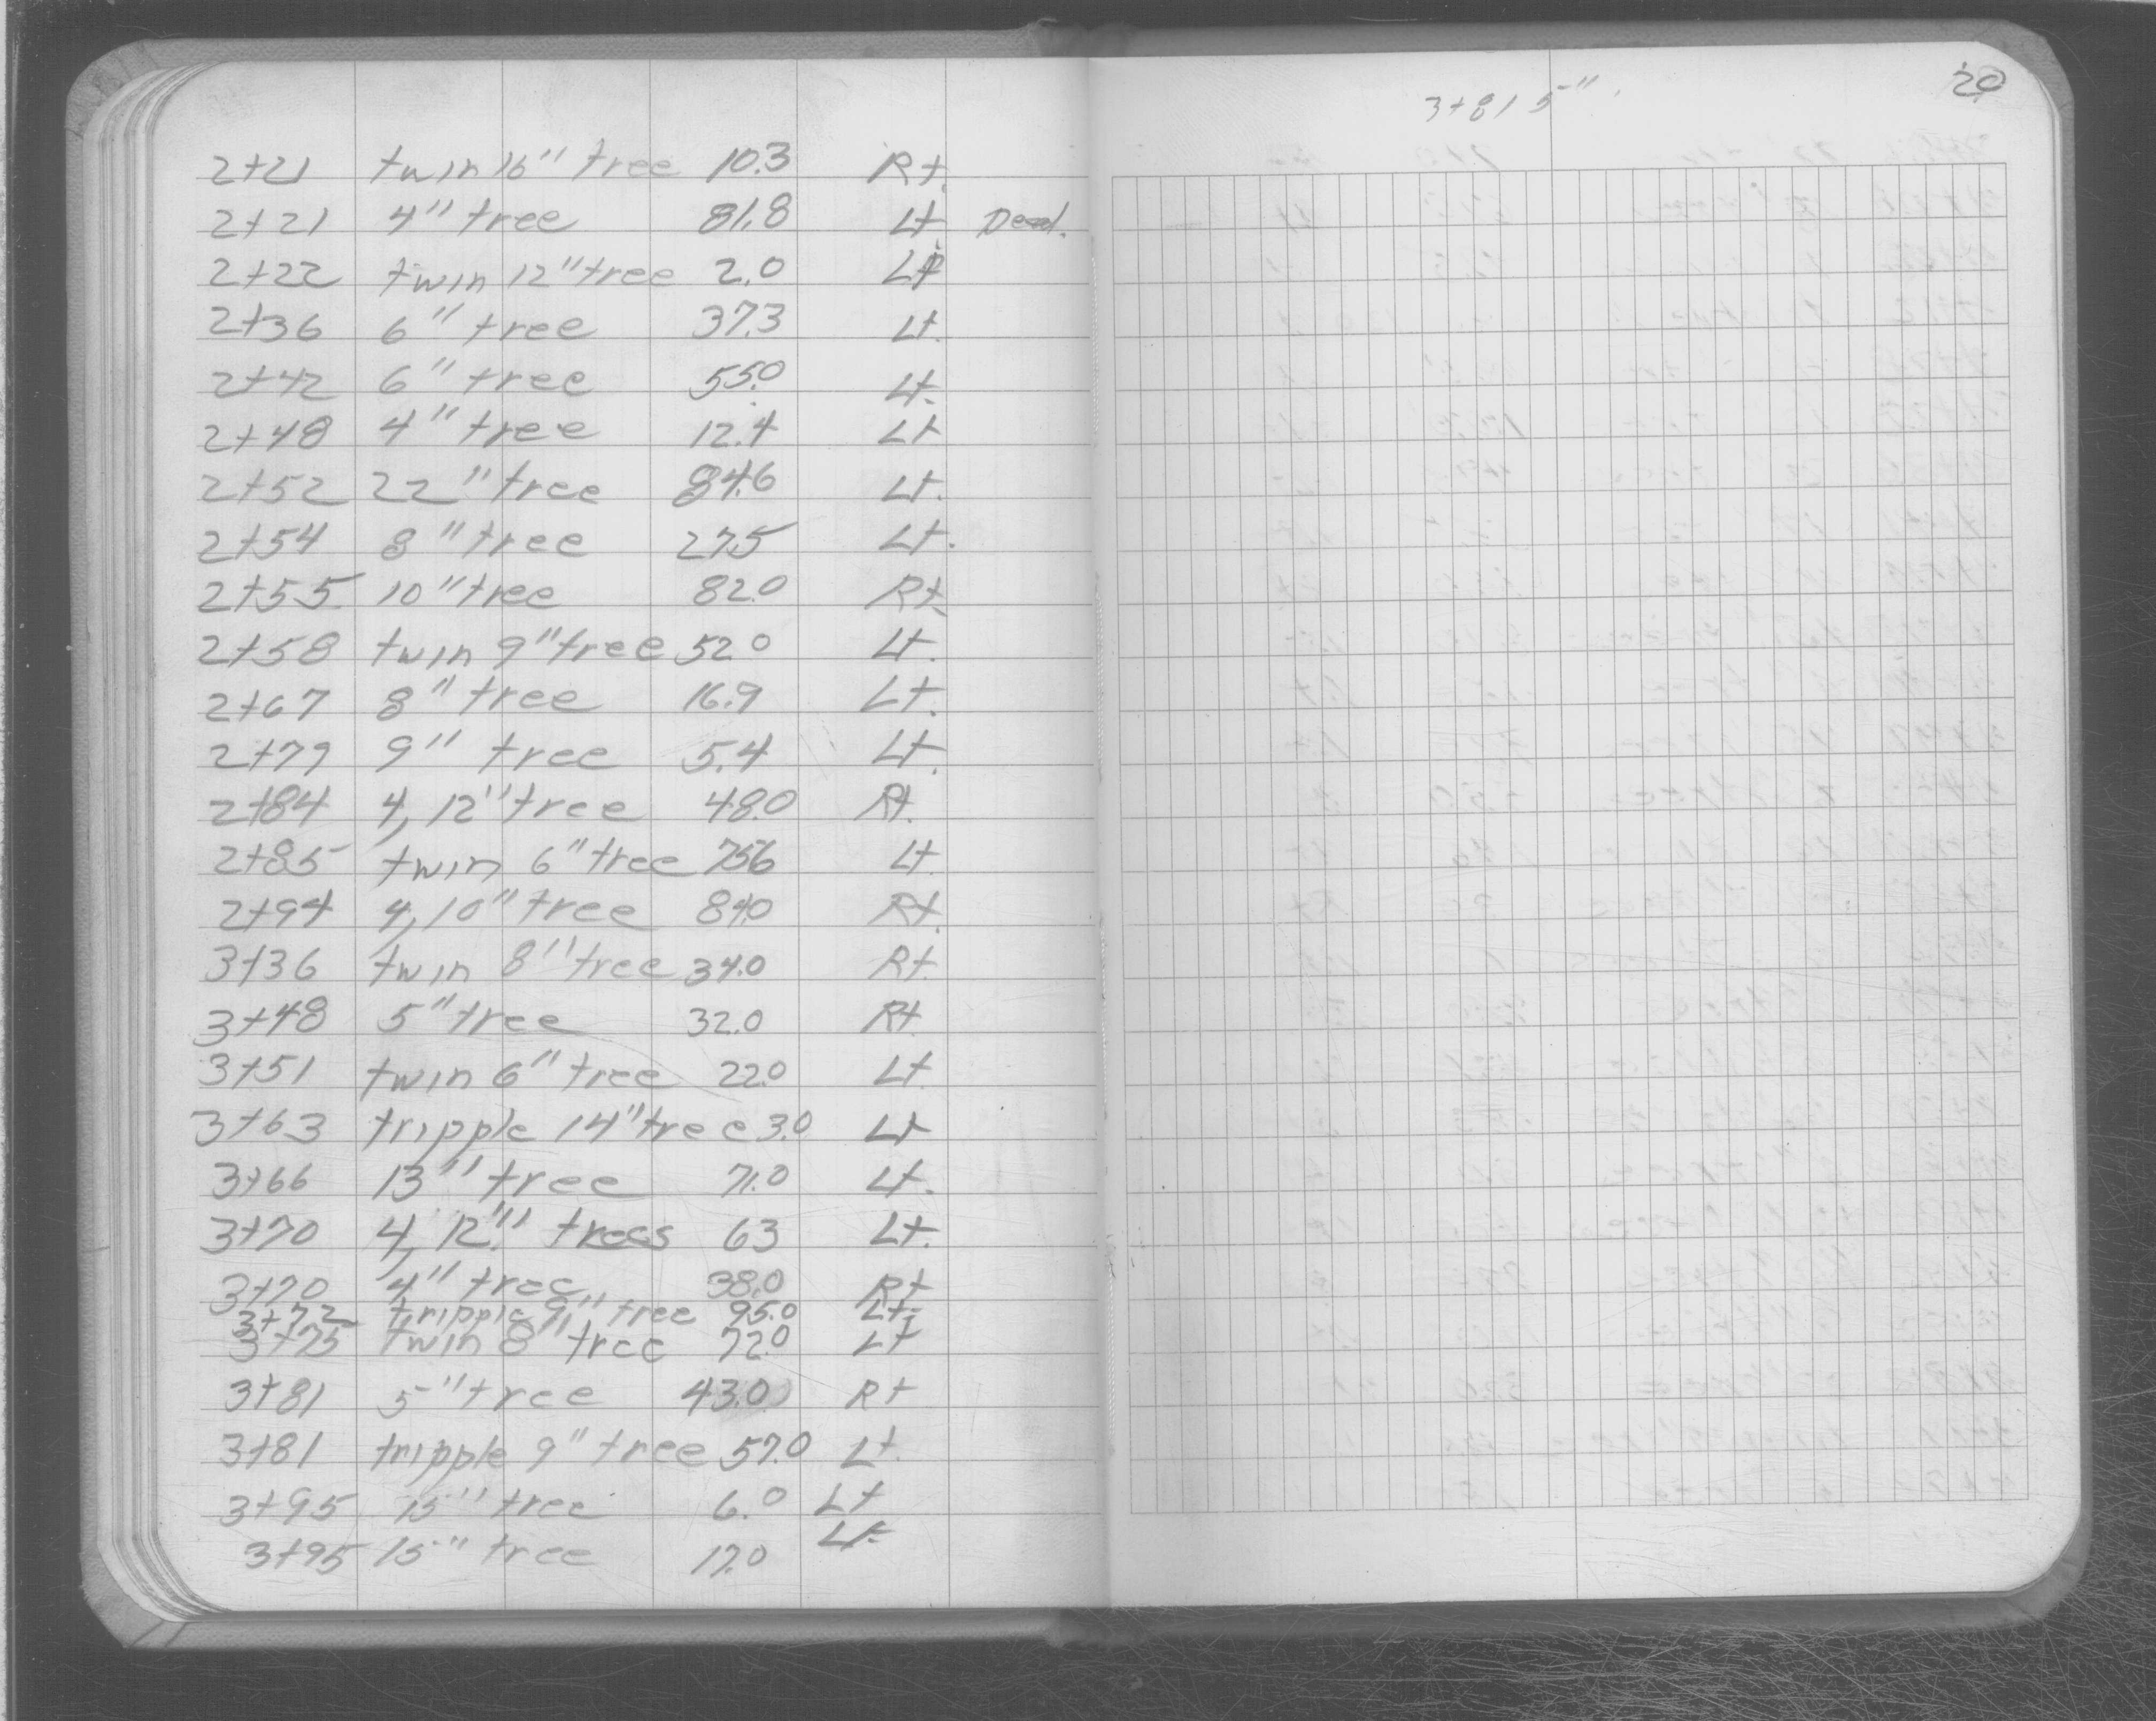 2+21 twin 16" tree 10.3 Rt.
2+21 4" tree 81.8 Lt. Dead.
2+22 twin 12" tree 2.0 Lt
2+36 6" tree 37.3 Lt.
2+42 6" tree 55.0 Lt.
2+48 4" tree 12.4 Lt
2+52 22" tree 84.6 Lt.
2+54 8" tree 27.5 Lt.
2+55 10" tree 82.0 Rt.
2+58 twin 9" tree 52.0 Lt.
2+67 8" tree 16.9 Lt.
2+79 9" tree 5.4 Lt.
2+84 4, 12" tree 48.0 Rt.
2+85 twin 6" tree 75.6 Lt.
2+94 4, 10" tree 84.0 Rt.
3+36 twin 8" tree 34.0 Rt.
3+48 5" tree 32.0 Rt
3+51 twin 6" tree 22.0 Lt
3+63 tripple 14" tree 3.0 Lt
3+66 13" tree 71.0 Lt.
3+70 4, 12" trees 63 Lt.
3+70 4" tree 38.0 Rt
3+72 tripple 9" tree 95.0 Lt.
3+75 twin 8" tree 72.0 Lt
3+81 5" tree 43.0 Rt
3+81 tripple 9" tree 57.0 Lt.
3+95 15" tree 6.0 Lt
3+95 15" tree 17.0 Lt.
20
3+81 5"